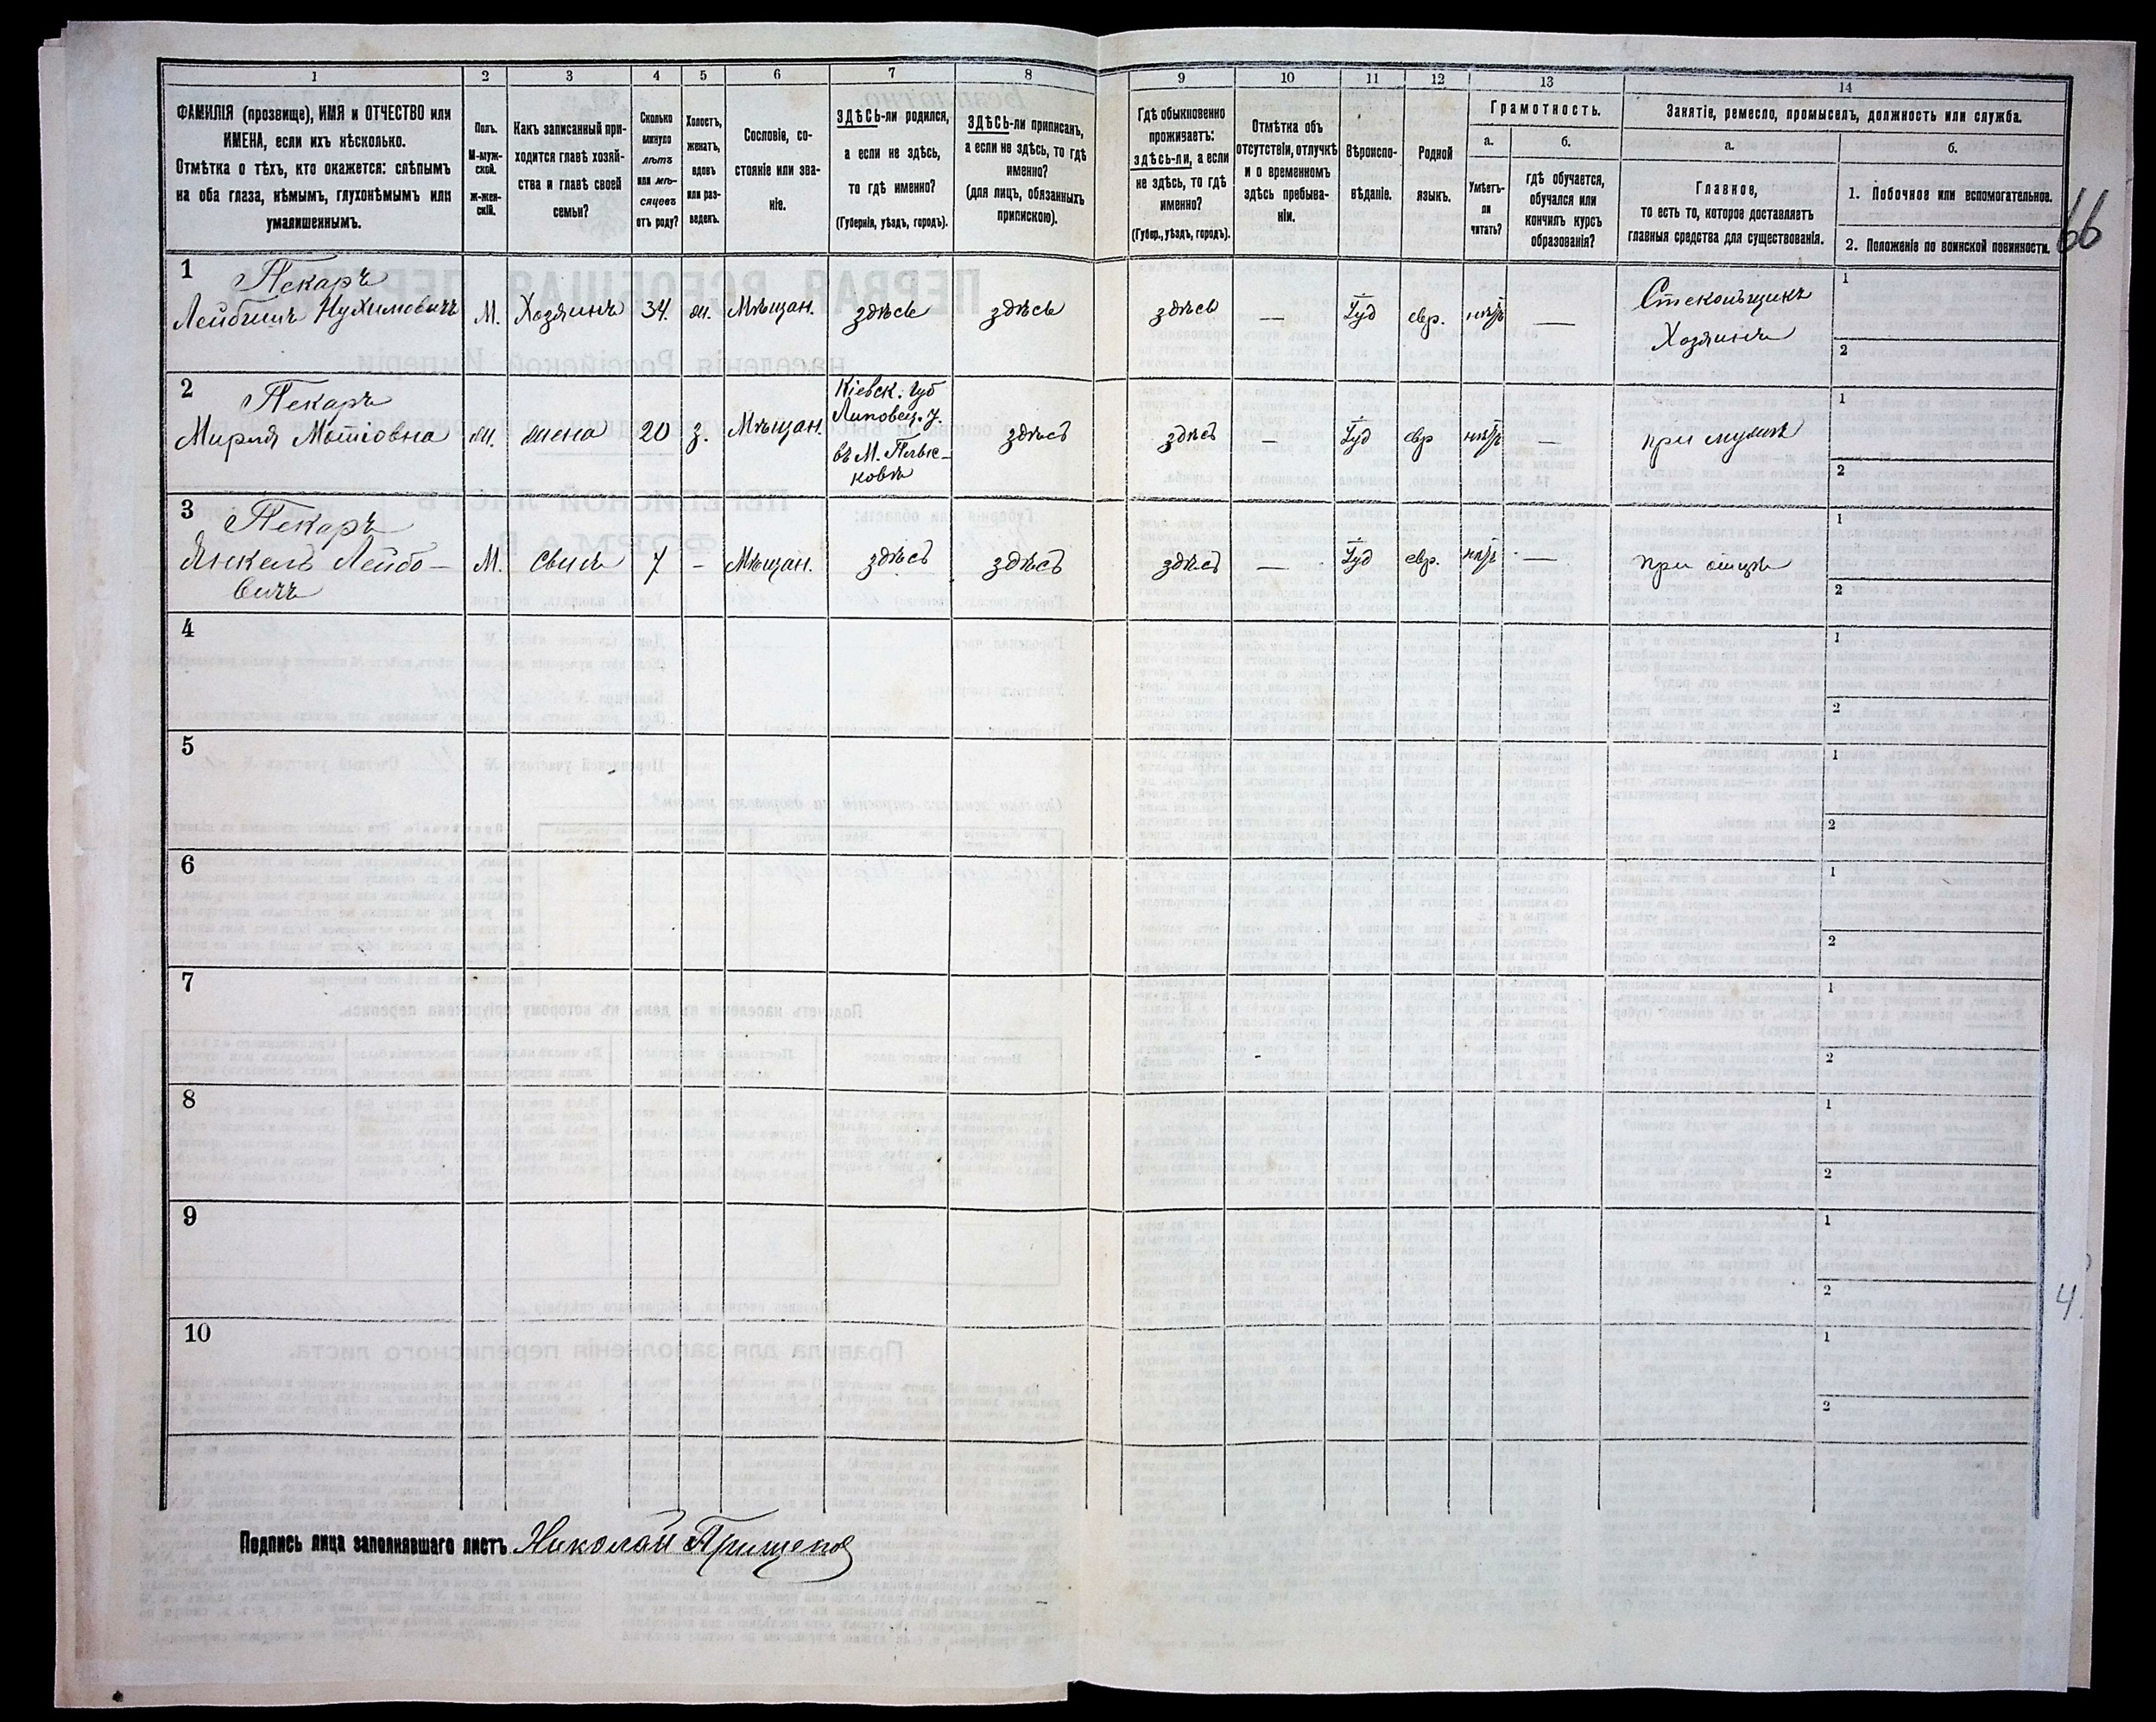 1 2 3 4 5 6 7 8 9 10 11 12 13 14
ФАМИЛІЯ (прозвище), ИМЯ и ОТЧЕСТВО или
ИМЕНА, если ихъ нѣсколько.
Отмѣтка о тѣхъ, кто окажется: слѣпымъ
на оба глаза, нѣмымъ, глухонѣмымъ или
умалишеннымъ.
Полъ.
М-муж-
ской.
Ж-жен-
скій.
Какъ записанный при-
ходится главѣ хозяй-
ства и главѣ своей
семьи?
Сколько
минуло
лѣтъ
или мѣ-
сяцевъ
отъ роду?
Холостъ,
женатъ,
вдовъ
или раз-
веденъ.
Сословіе, со-
стояніе или зва-
ніе.
ЗДѢСЬ-ли родился,
а если не здѣсь,
то гдѣ именно?
(Губернія, уѣздъ, городъ).
ЗДѢСЬ-ли приписанъ,
а если не здѣсь, то гдѣ
именно?
(для лицъ, обязанныхъ
припискою).
Гдѣ обыкновенно
проживаетъ:
здѣсь-ли, а если
не здѣсь, то гдѣ
именно?
(Губер., уѣздъ, городъ).
Отмѣтка объ
отсутствіи, отлучкѣ
и о временномъ
здѣсь пребыва-
ніи.
Вѣроиспо-
вѣданіе.
Родной
языкъ.
Грамотность.
а.
Умѣетъ-
ли
читать?
б.
гдѣ обучается,
обучался или
кончилъ курсъ
образованія?
Занятіе, ремесло, промыселъ, должность или служба.
а.
Главное,
то есть то, которое доставляетъ
главныя средства для существованія.
б.
1. Побочное или вспомогательное.
2. Положеніе по воинской повинности.
66
1
Пекаръ
Лейбишъ Нухимовичъ М. Хозяинъ 34. ж. Мѣщан. здѣсь здѣсь здѣсь — Іуд евр. нѣтъ —
Стекольщикъ
Хозяинъ
1
2
2
Пекаръ
Кіевск. Губ
Липовец. у.
Мирля Мотіовна ж. жена 20 з. Мѣщан. здѣсь здѣсь — Іуд евр нѣтъ — при мужѣ
въ М.
1
2
3
Пекаръ
Янкель Лейбо-
вичъ
М. Сынъ 7 – Мѣщан. здѣсь здѣсь здѣсь — Іуд евр. нѣтъ — при отцѣ
1
2
4
1
2
5
1
2
6
1
2
7
1
2
8
1
2
9
1
2
4
10
1
2
Подпись лица заполнявшаго листъ Николай